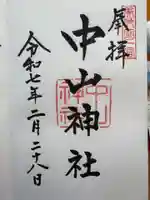 奉拝
中山神社
令和七年二月二十八日